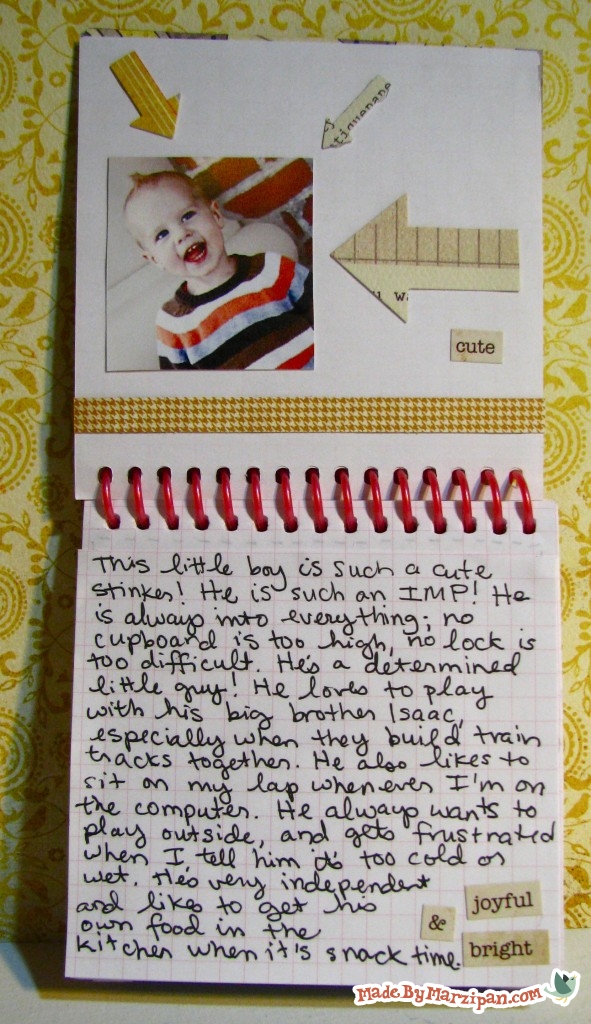 cute
This little boy is such a cute
stinker! He is such an IMP! He
is always into everything; no
cupboard is too high, no lock is
too difficult. He's a determined
little guy! He loves to play
with his big brother Isaac,
especially when they build train
tracks together. He also likes to
sit on my lap whenever I'm on
the computer. He always wants to
play outside, and gets frustrated
when I tell him it's too cold or
wet. He's very independent
and likes to get his
own food in the
kitchen when it's snack time.
joyful
&
bright
MadeByMarzipan.com